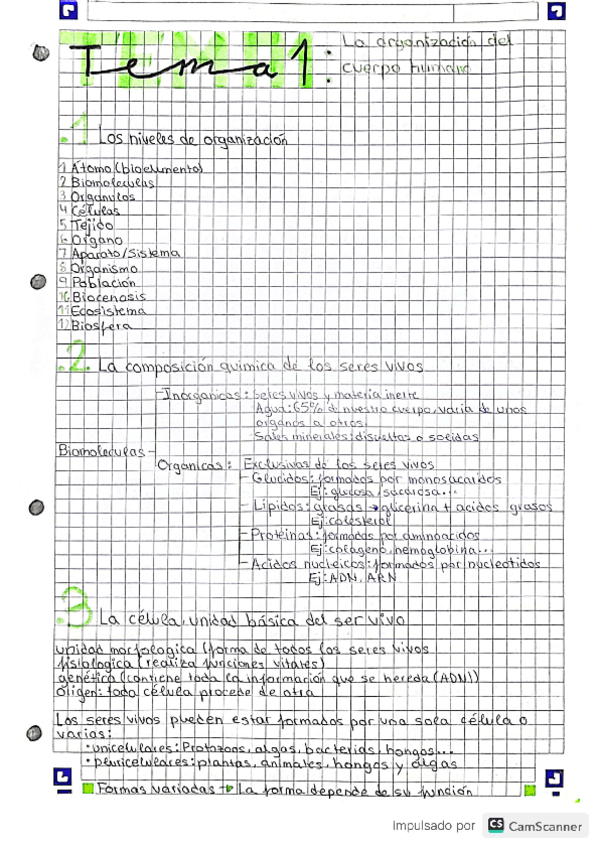 Tema 1: La organización del
cuerpo humano
.1 Los niveles de organización
1 Átomo (bioelemento)
2 Biomoleculas
3 Organulos
4 Células
5 Tejido
6 Organo
7 Aparato/Sistema
8 Organismo
9 Población
10 Biocenosis
11 Ecosistema
12 Biosfera
.2. La composición quimica de los seres vivos
Inorganicas: seres vivos y materia inerte
Agua: 65% d nuestro cuerpo, varia de unos
organos a otros.
Sales minerales: disueltas o solidas
Biomoleculas
Organicas: Exclusivas de los seres vivos
Glucidos: formados por monosacaridos
Ej: glucosa, sacarosa...
Lípidos: grasas → glicerina + acidos grasos
Ej: colesterol
Proteinas: formadas por aminoacidos
Ej: colageno, hemoglobina...
Acidos nucleicos: formados por nucleotidos
Ej: ADN, ARN
.3 La célula, unidad básica del ser vivo
unidad morfologica (forma de todos los seres vivos
fisiologica (realiza funciones vitales)
genética (contiene toda la información que se hereda (ADN))
origen: toda célula procede de otra
Los seres vivos pueden estar formados por una sola célula o
varias:
• unicelulares: Protozoos, algas, bacterias, hongos...
• pluricelulares: plantas, animales, hongos y algas
Formas variadas → La forma depende de su función
Impulsado por CS CamScanner